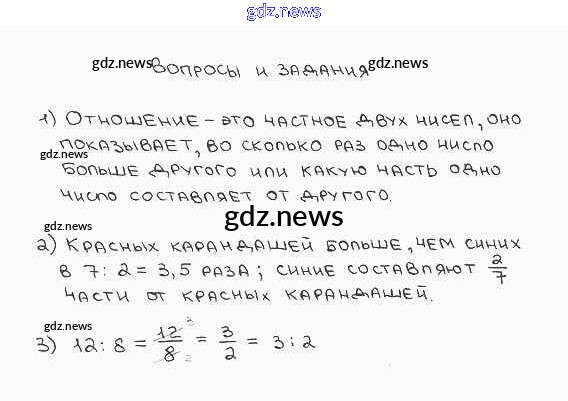 gdz.news
gdz.news ВОПРОСЫ И ЗАДАНИЯ gdz.news
1) ОТНОШЕНИЕ – ЭТО ЧАСТНОЕ ДВУХ ЧИСЕЛ, ОНО
ПОКАЗЫВАЕТ, ВО СКОЛЬКО РАЗ ОДНО ЧИСЛО
gdz.news
БОЛЬШЕ ДРУГОГО ИЛИ КАКУЮ ЧАСТЬ ОДНО
ЧИСЛО СОСТАВЛЯЕТ ОТ ДРУГОГО.
gdz.news
gdz.news
2) КРАСНЫХ КАРАНДАШЕЙ БОЛЬШЕ, ЧЕМ СИНИХ
В 7 : 2 = 3,5 РАЗА ; СИНИЕ СОСТАВЛЯЮТ 2/7
ЧАСТИ ОТ КРАСНЫХ КАРАНДАШЕЙ.
gdz.news
3) 12 : 8 = 12 3/8 2 = 3/2 = 3 : 2